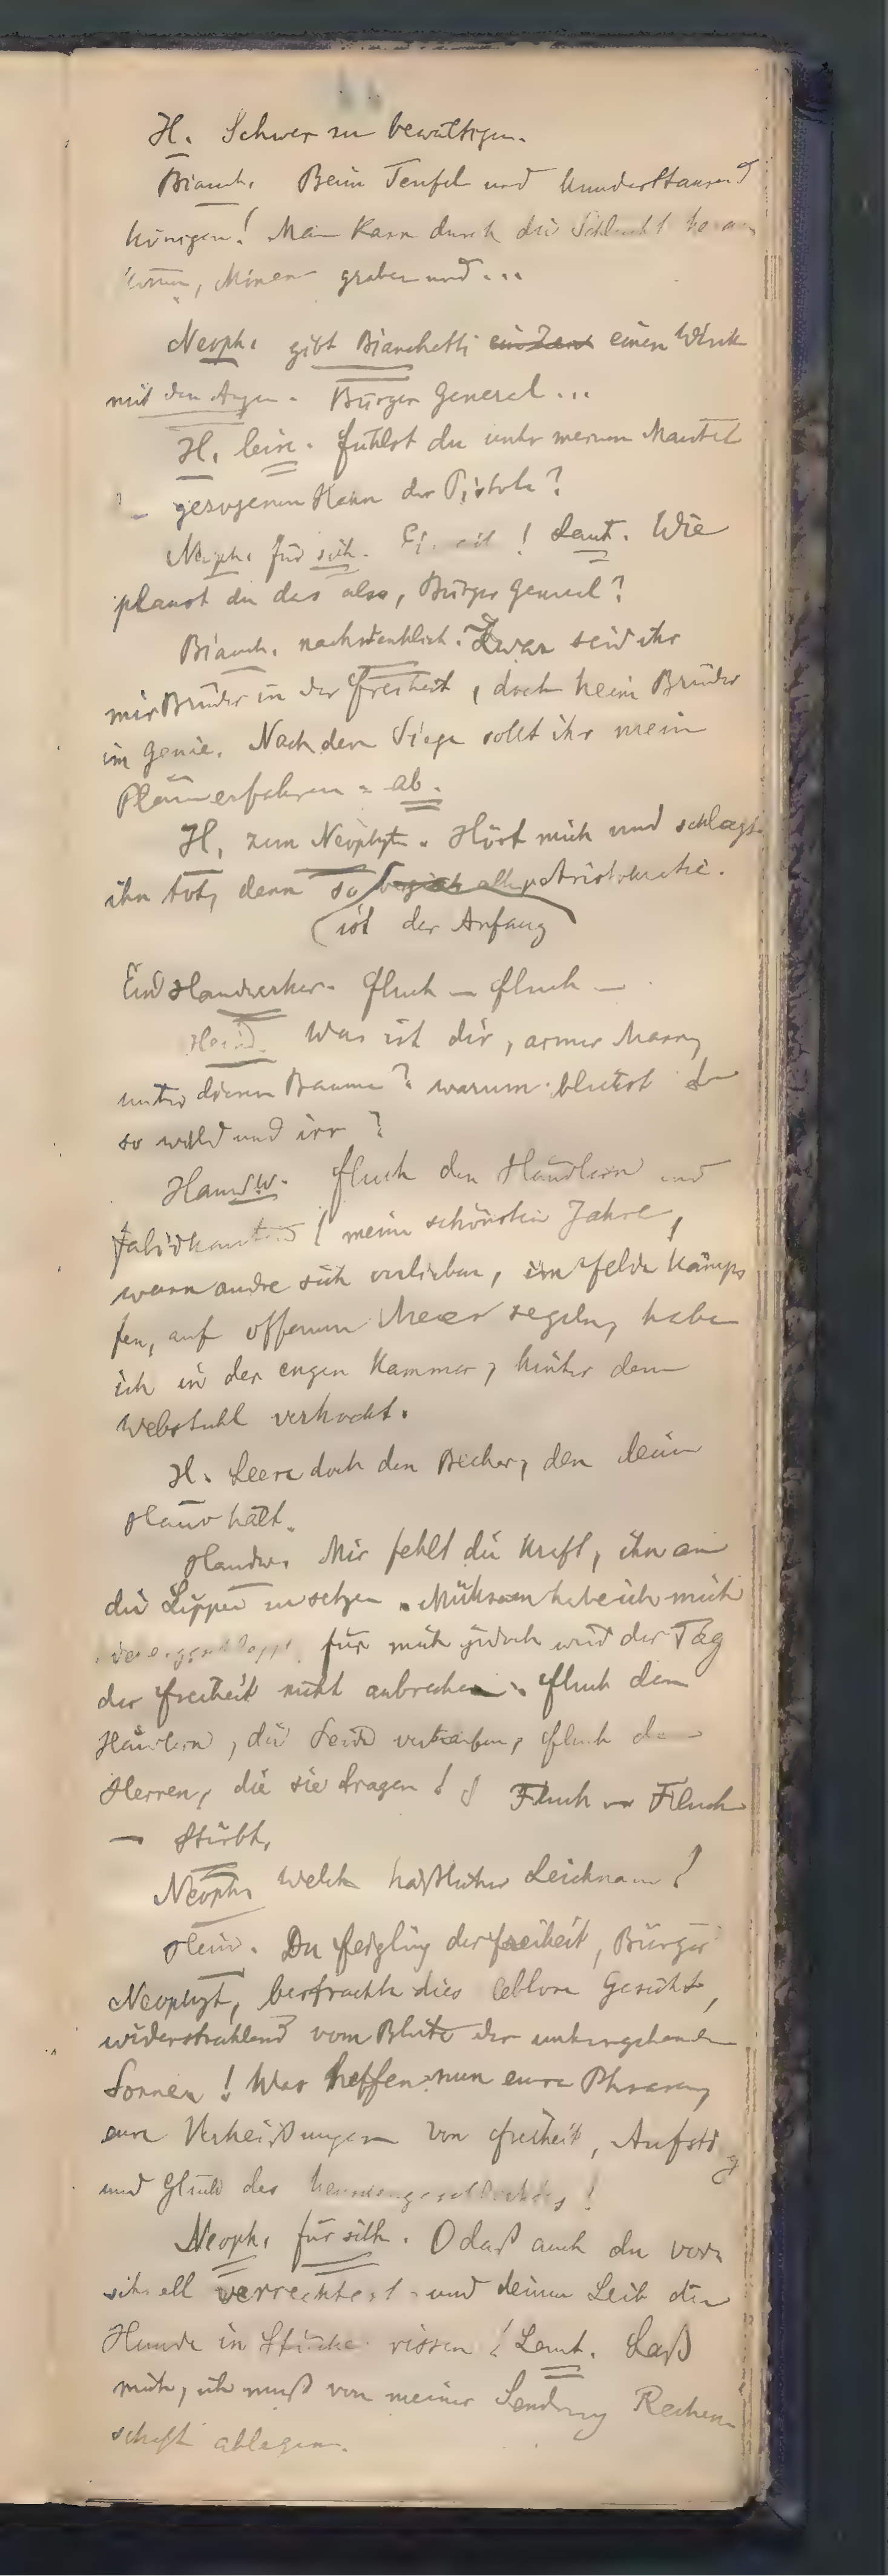 H. Schwer zu bewältigen.
Bianch. Beim Teufel und hunderttausend
Königen! Man kann durch die Schlucht heran
kommen, Minen graben und ...
Neoph. gibt Bianchetti einen Wink
mit den Augen. Bürger General ...
H. leise. Fühlst du unter meinem Mantel
gezogenen Hahn der Pistole?
Neoph. für sich. ! Laut. Wie
planst du das also, Bürger General?
Bianch. nachdenklich. Zwar seid ihr
mir Brüder in der Freiheit, doch kein Brüder
im Genie. Nach dem Siege sollt ihr mein
Pläne erfahren - ab.
H. zum Neophyt. Hört mich und schlagt
ihn tot, denn so aller Aristokratie.
ist der Anfang
Ein Handwerker. Fluch — Fluch —
Hein. Was ist dir, armer Mann,
unter diesem Baume? warum blutest du
so wild und irr?
Handw. Fluch den Händlern und
Fabrikanten! meine schönsten Jahre,
wenn andre sich verlieben, im Felde kämp
fen, auf offenem Meer segeln, habe
ich in der engen Kammer, hinter dem
Webstuhl verhockt.
H. Leere doch den Becher, den deine
Hand hält.
Handw. Mir fehlt die Kraft, ihn an
die Lippen zu setzen. Mühsam habe ich mich
für mich jedoch wird der Tag
der Freiheit nicht anbrechen. Fluch den
Händlern, die Seide verkaufen, Fluch den
Herren, die sie tragen! Fluch — Fluch
— Stirbt.
Neoph. Welch häßlicher Leichnam!
Hein. Du Feigling der Freiheit, Bürger
Neophyt, betrachte dies leblose Gesicht,
widerstrahlend vom Blute der untergehenden
Sonnen! Was helfen nun eure Phrasen,
eure Verheißungen von Freiheit, Aufstieg
und Glück des Menschengeschlechtes!
Neoph. für sich. O daß auch du vor
schnell verrecktest und deinen Leib die
Hunde in Stücke rissen! Laut. Laß
mich, ich muß von meiner Sendung Rechen
schaft ablegen.